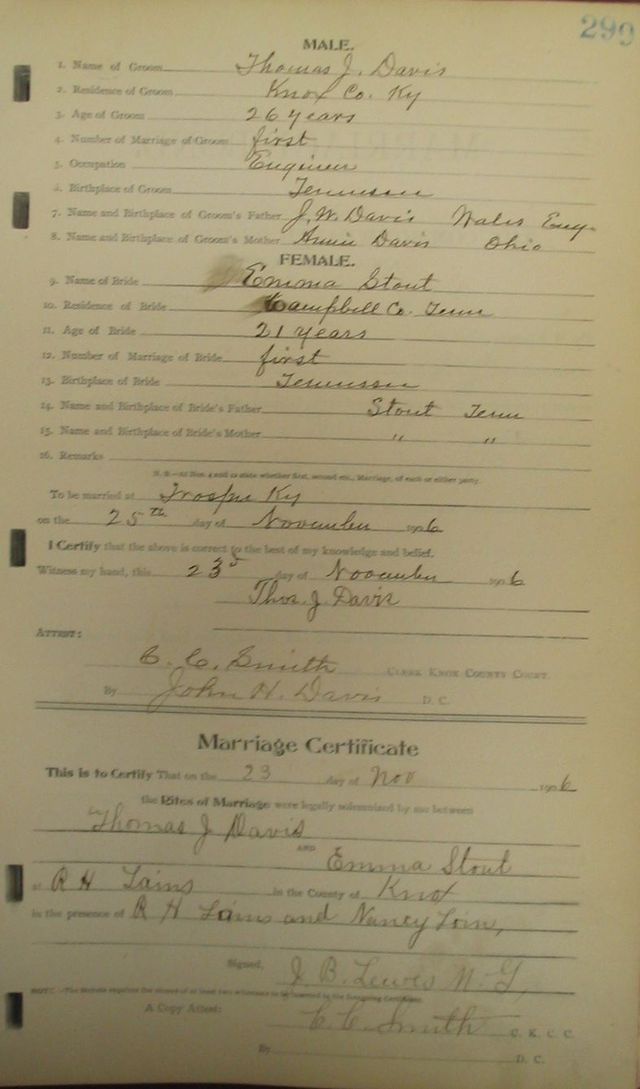 299
MALE.
1. Name of Groom Thomas J. Davis
2. Residence of Groom Knox Co. Ky
3. Age of Groom 26 years
4. Number of Marriage of Groom first
5. Occupation Engineer
6. Birthplace of Groom Tennessee
7. Name and Birthplace of Groom's Father J. W. Davis Wales Eng.
8. Name and Birthplace of Groom's Mother Annie Davis Ohio
FEMALE.
9. Name of Bride Emma Stout
10. Residence of Bride Campbell Co. Tenn
11. Age of Bride 21 years
12. Number of Marriage of Bride first
13. Birthplace of Bride Tennessee
14. Name and Birthplace of Bride's Father Stout Tenn
15. Name and Birthplace of Bride's Mother " "
16. Remarks
N. B.—At Nos. 4 and 12 state whether first, second etc., Marriage, of each or either party.
To be married at Trosper Ky
on the 25th day of November 1906
I Certify that the above is correct to the best of my knowledge and belief.
Witness my hand, this 23 day of November 1906
Thos. J. Davis
ATTEST:
C. C. Smith CLERK KNOX COUNTY COURT.
By John H. Davis D. C.
Marriage Certificate
This is to Certify That on the 23 day of Nov 1906
the Rites of Marriage were legally solemnized by me between
Thomas J Davis
AND
Emma Stout
at R H Lains in the County of Knox
in the presence of R H Lains and Nancy
Signed, J. B. Lewis M. G,
NOTE.—The Statute requires the names of at least two witnesses to be inserted in the foregoing Certificate.
A Copy Attest: C C Smith C. K. C. C.
By D. C.